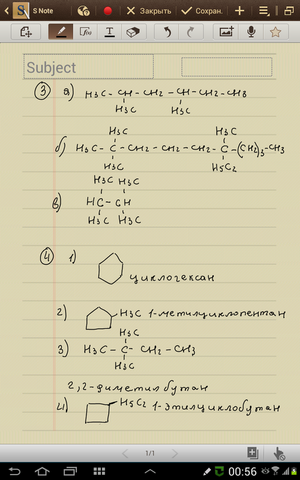 S Note
Закрыть
Сохран.
Subject
3 а) H3C - CH - CH2 - CH - CH2 - CH3
H3C H3C
H3C H3C
б) H3C - C - CH2 - CH2 - CH2 - C - (CH2)3 - CH3
H3C H5C2
H3C H3C
в) HC - CH
H3C H3C
4 1)
циклогексан
2) H3C 1-метилциклопентан
H3C
3) H3C - C - CH2 - CH3
H3C
2,2-диметилбутан
4) H5C2 1-этилциклобутан
1/1
00:56